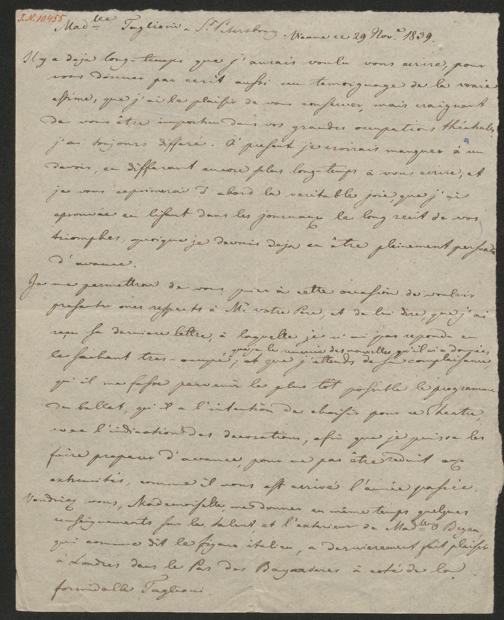 I.N. 10455
Mad.lle Taglioni a S.t Petersbourg Vienne ce 29 Nov.e 1839.
Il y a deja long-temps que j'aurais voulu vous ecrire, pour
vous donner par ecrit aussi un temoignage de la vraie
estime, que j'ai le plaisir de vous conserver, mais craignant
de vous être importun dans vos grandes occupations théatrales,
j'ai toujours differé. A present je croirais manquer à un
devoir, en differant encore plus long-temps à vous ecrire, et
je vous exprimerai d'abord la veritable joie que j'ai
eprouvée en lisant dans les journaux le long recit de vos
triomphes, quoique je devais deja en être pleinement persuadé
d'avance.
Je me permettrai de vous prier à cette occasion de vouloir
presenter mes respects à M.r votre Pere, et de lui dire que j'ai
reçu sa derniere lettre, à laquelle je n'ai pas repondu en
le sachant tres-occupé, que je le remercie des nouvelles qu'il m'a données,
et que j'attends de sa complaisance
qu'il me fasse parvenir le plus tôt possible le programme
du ballet, qu'il a l'intention de choisir pour ce Theatre,
avec l'indication des decorations, afin que je puisse les
faire preparer d'avance pour ne pas être reduit aux
extremités, comme il nous est arrivé l'année passée.
Voudriez vous, Mademoiselle me donner en même temps quelques
renseignements sur le talent et l'exterieur de Mad.lle
qui comme dit le figaro italien, a dernierement fait plaisir
à Londres dans le Pas des Bayaderes à coté de la
formidable Taglioni.